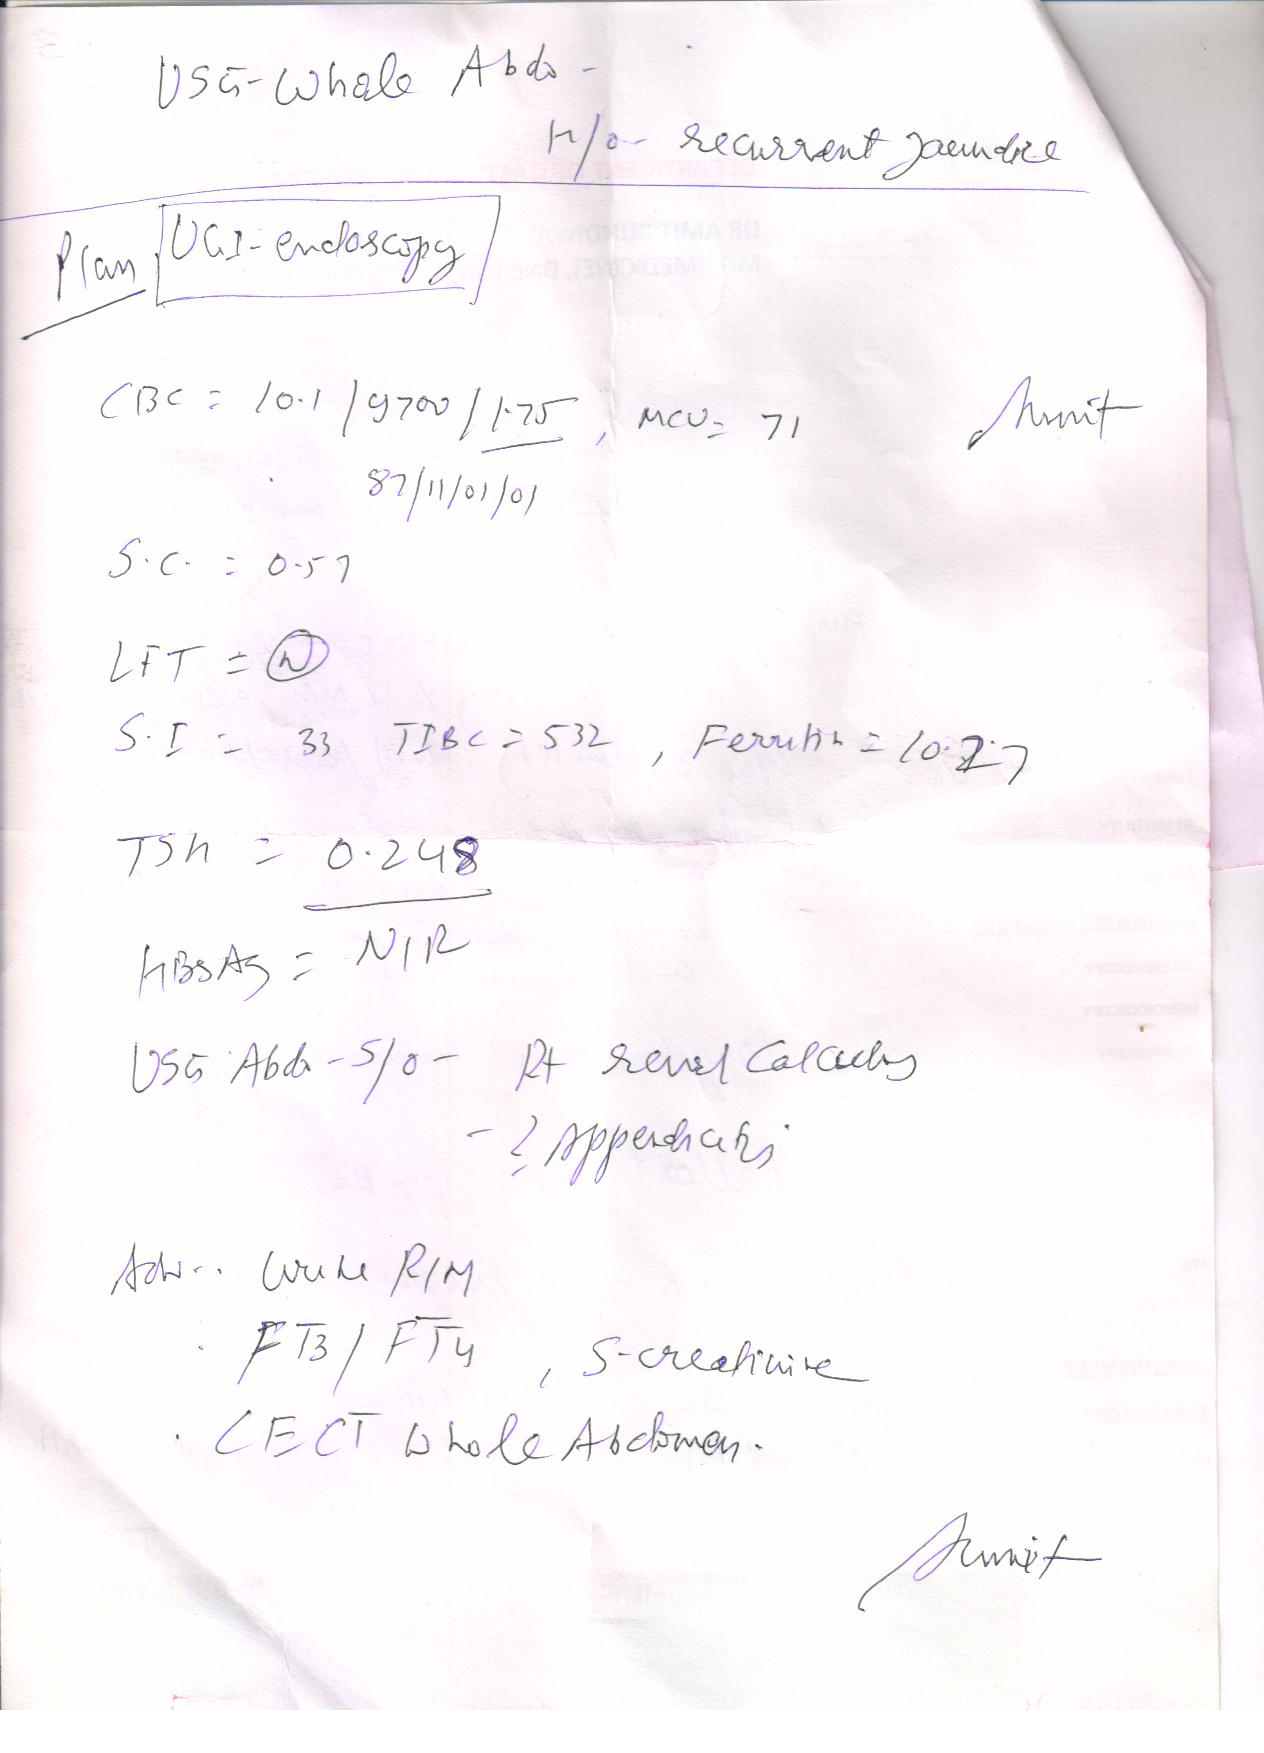 USG-Whole Abdo -
H/o- recurrent jaundice
Plan UGI-endoscopy
CBC = 10.1 / 9700 / 1.75, MCV= 71
Amit
87/11/01/01
S.C. = 0.57
LFT = N
S.I = 33 TIBC = 532, Ferritin = 10.27
TSH = 0.248
HBsAg = N/R
USG Abdo - S/O - Rt renal Calculus
- ? Appendicitis
Adv.. Urine R/M
FT3 / FT4, S-creatinine
. CECT Whole Abdomen.
Amit